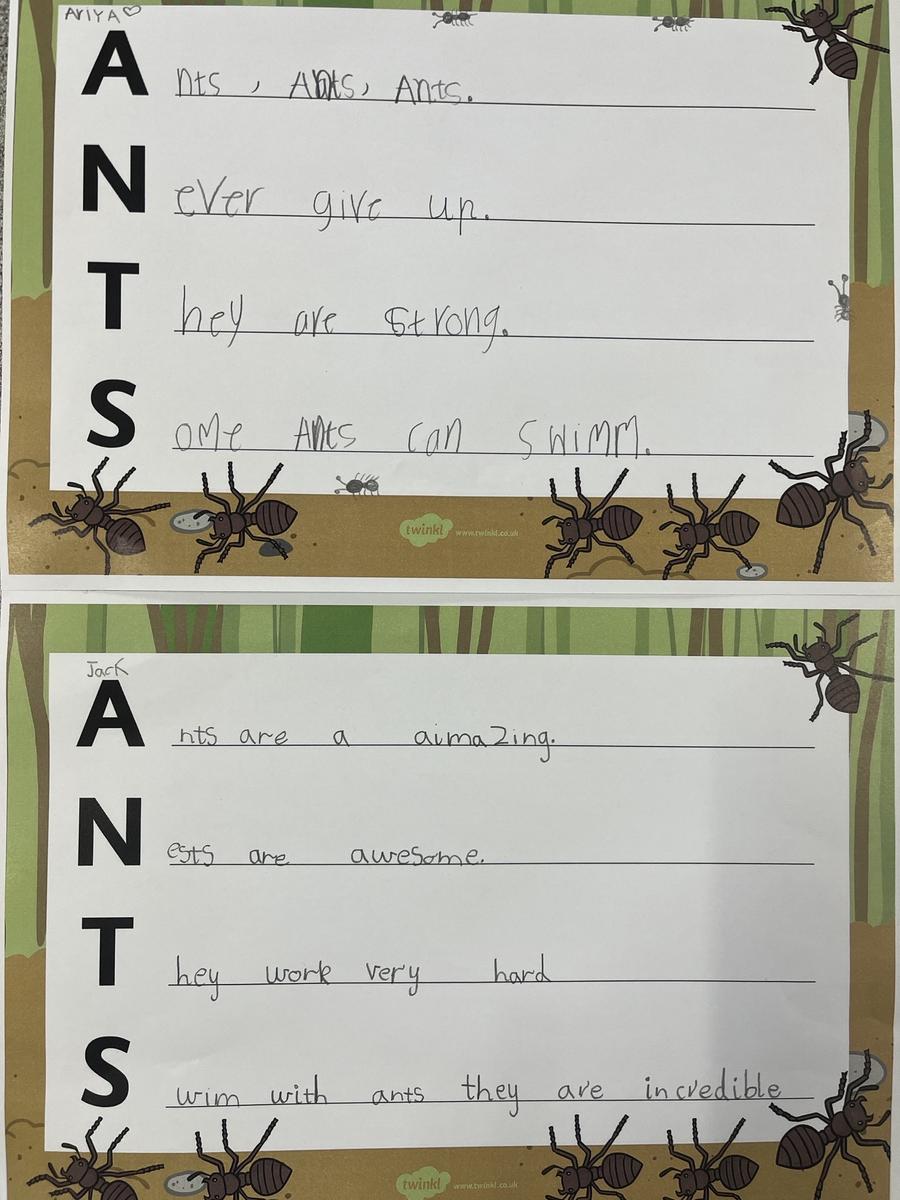 ARIYA
Ants, Ants, Ants.
Never give up.
They are Strong.
Some Ants can Swimm.
twinkl www.twinkl.co.uk
Jack
Ants are a aimazing.
Nests are awesome.
They work very hard
Swim with ants they are incredible
twinkl www.twinkl.co.uk